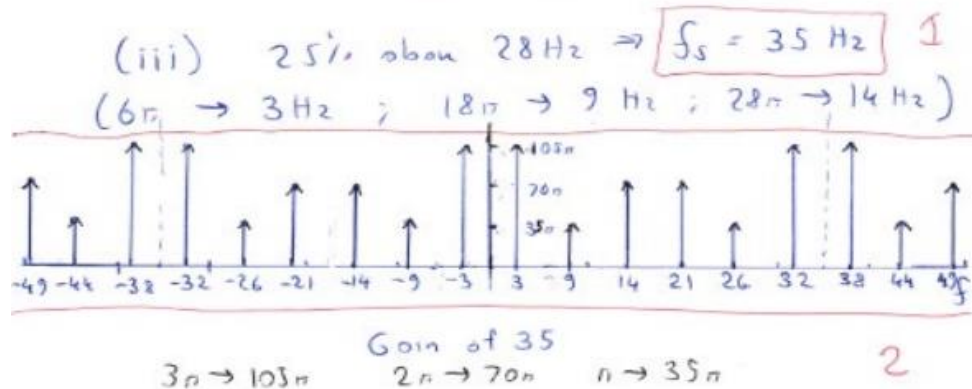 (iii) 25% abou 28 Hz ⇒ fs = 35 Hz 1
(6π → 3 Hz ; 18π → 9 Hz ; 28π → 14 Hz)
105π
70π
35π
-49 -44 -38 -32 -26 -21 -14 -9 -3 3 9 14 21 26 32 38 44 49 f
Gain of 35
3π → 105π 2π → 70π π → 35π 2